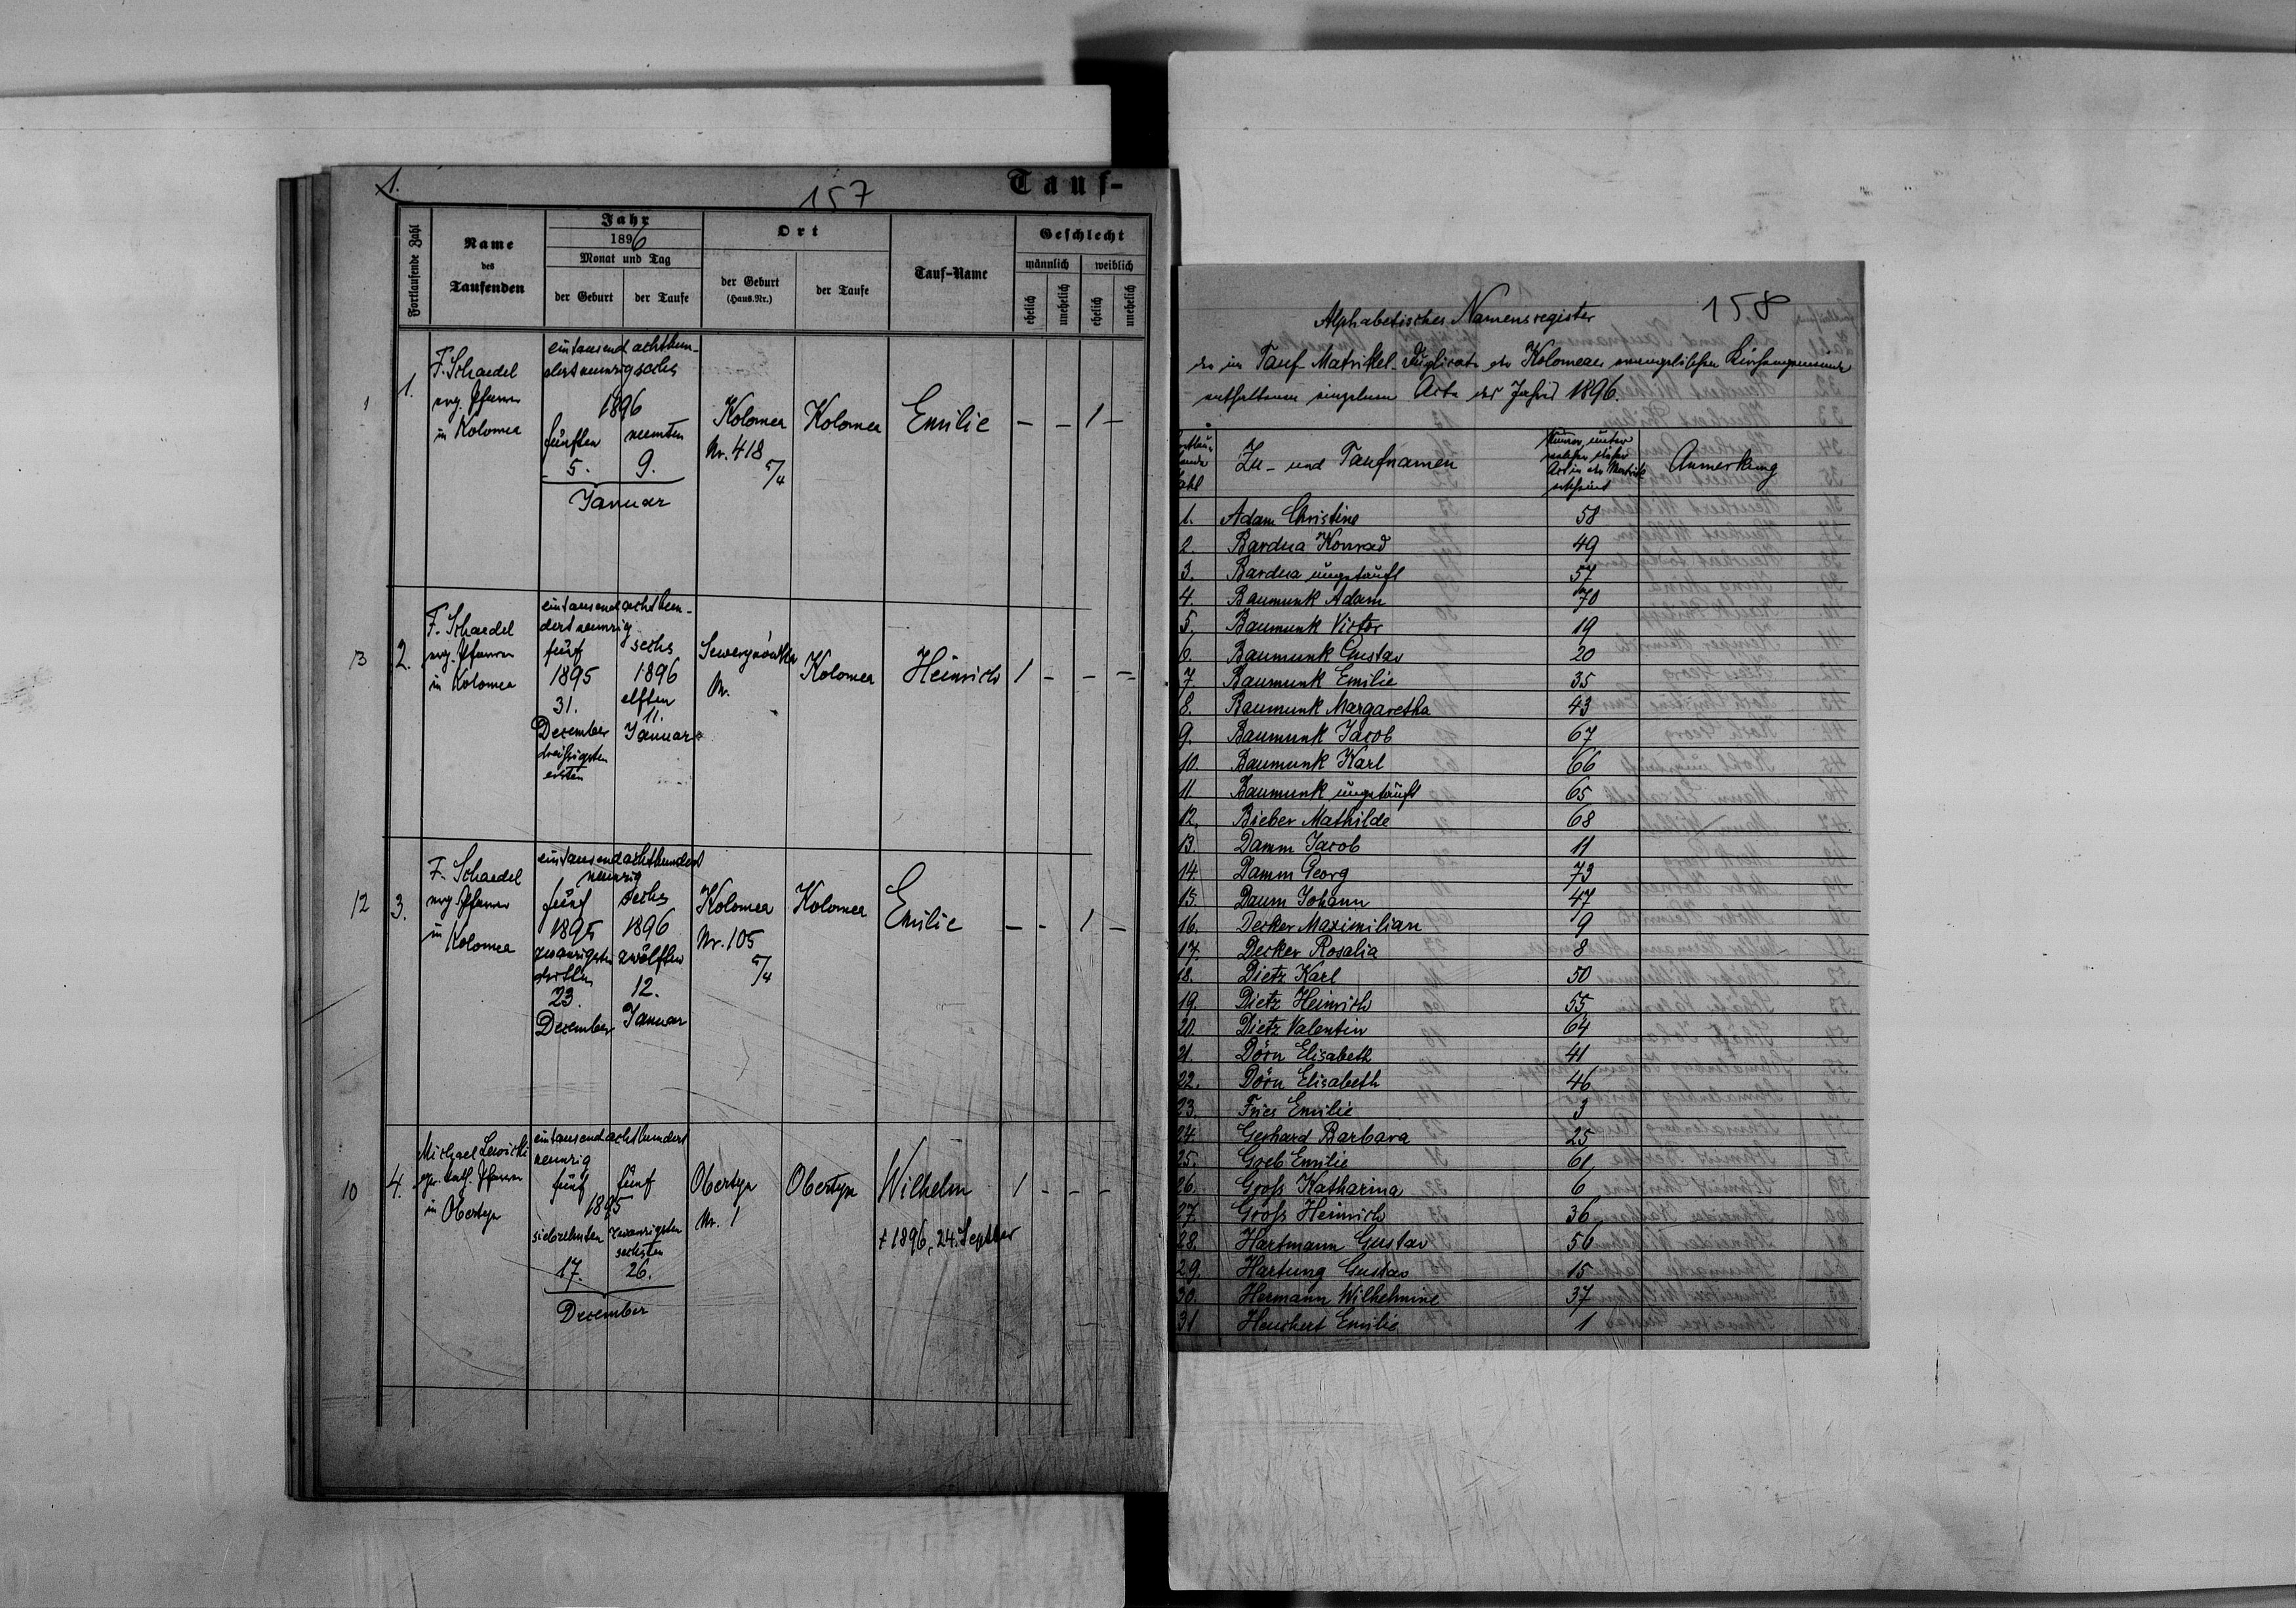 1.
157
Tauf-
Fortlaufende Zahl
Name
des
Taufenden
Jahr
1896
Monat und Tag
der Geburt
der Taufe
Ort
der Geburt
(Haus-Nr.)
der Taufe
Tauf-Name
Geschlecht
männlich
weiblich
ehelich
unehelich
ehelich
unehelich
1
1.
F. Schaedel
evg. Pfarrer
in Kolomea
eintausend achthun-
dertneunzigsechs
1896
fünften
neunten
5.
9.
Januar
Kolomea
Nr. 418
5/4
Kolomea
Emilie
— — 1 —
13
2.
F. Schaedel
evg. Pfarrer
in Kolomea
eintausendachthun-
dertneunzig
fünf
sechs
1895
1896
31.
elften
11.
December
Januar
dreißigsten
ersten
Sewerynówka
Nr.
Kolomea
Heinrich
1 — — —
12
3.
F. Schaedel
evg. Pfarrer
in
Kolomea
eintausendachthundert
neunzig
fünf
sechs
1895
1896
zwanzigsten
zwölften
dritten
23.
12.
December
Januar
Kolomea
Nr. 105
5/4
Kolomea
Emilie
— - 1 —
10
4.
Michael Lewicki
gr. kath. Pfarrer
in Obertyn
eintausendachthundert
neunzig
fünf
fünf
1895
siebzehnten
zwanzigsten
sechsten
17.
26.
December
Obertyn
Nr. 1
Obertyn
Wilhelm
† 1896, 24. September
1 - - -
158
Alphabetisches Namensregister
der im Tauf-Matrikel-Duplicate der Kolomeaer evangelischen Kirchengemeinde
enthaltenen einzelnen Acte des Jahres 1896.
Zu- und Taufnamen
Numer, unter
welcher dieser
Act in der Matrikel
erscheint
Anmerkung
1. Adam Christine 58
2. Bardua Konrad 49
3. Bardua ungetauft 57
4. Baumunk Adam 70
5. Baumunk Victor 19
6. Baumunk Gustav 20
7. Baumunk Emilie 35
8. Baumunk Margaretha 43
9. Baumunk Jacob 67
10. Baumunk Karl 66
11. Baumunk ungetauft 65
12. Bieber Mathilde 68
13. Damm Jacob 11
14. Damm Georg 73
15. Daum Johann 47
16. Decker Maximilian 9
17. Decker Rosalia 8
18. Dietz Karl 50
19. Dietz Heinrich 55
20. Dietz Valentin 64
21. Dörn Elisabeth 41
22. Dörn Elisabeth 46
23. Fries Emilie 3
24. Gerhard Barbara 25
25. Goeb Emilie 61
26. Groß Katharina 6
27. Groß Heinrich 36
28. Hartmann Gustav 56
29. Hartung Gustav 15
30. Hermann Wilhelmine 37
31 Heuchert Emilie 1